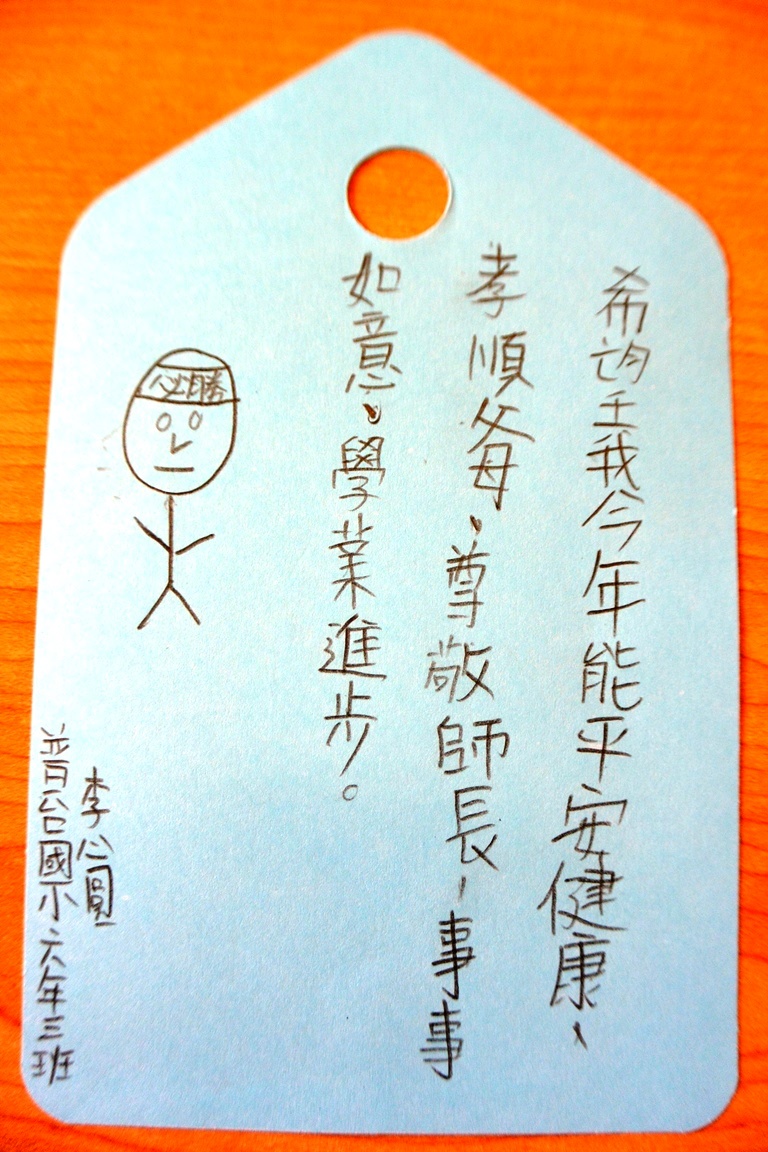 希望我今年能平安健康、
孝順父母、尊敬師長、事事
如意、學業進步。
必勝
李心圓
普台國小六年三班